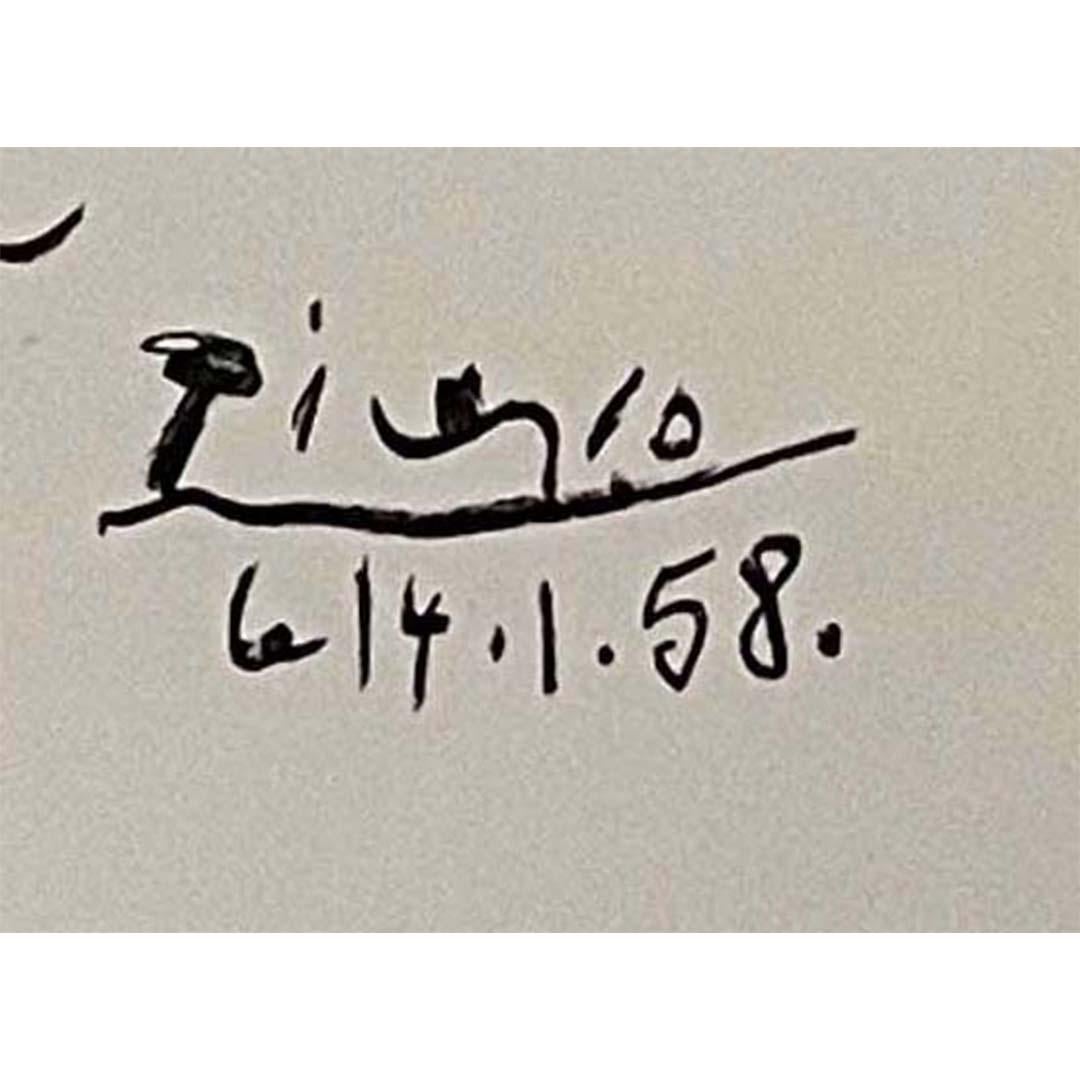 Picasso
le 14.1.58.